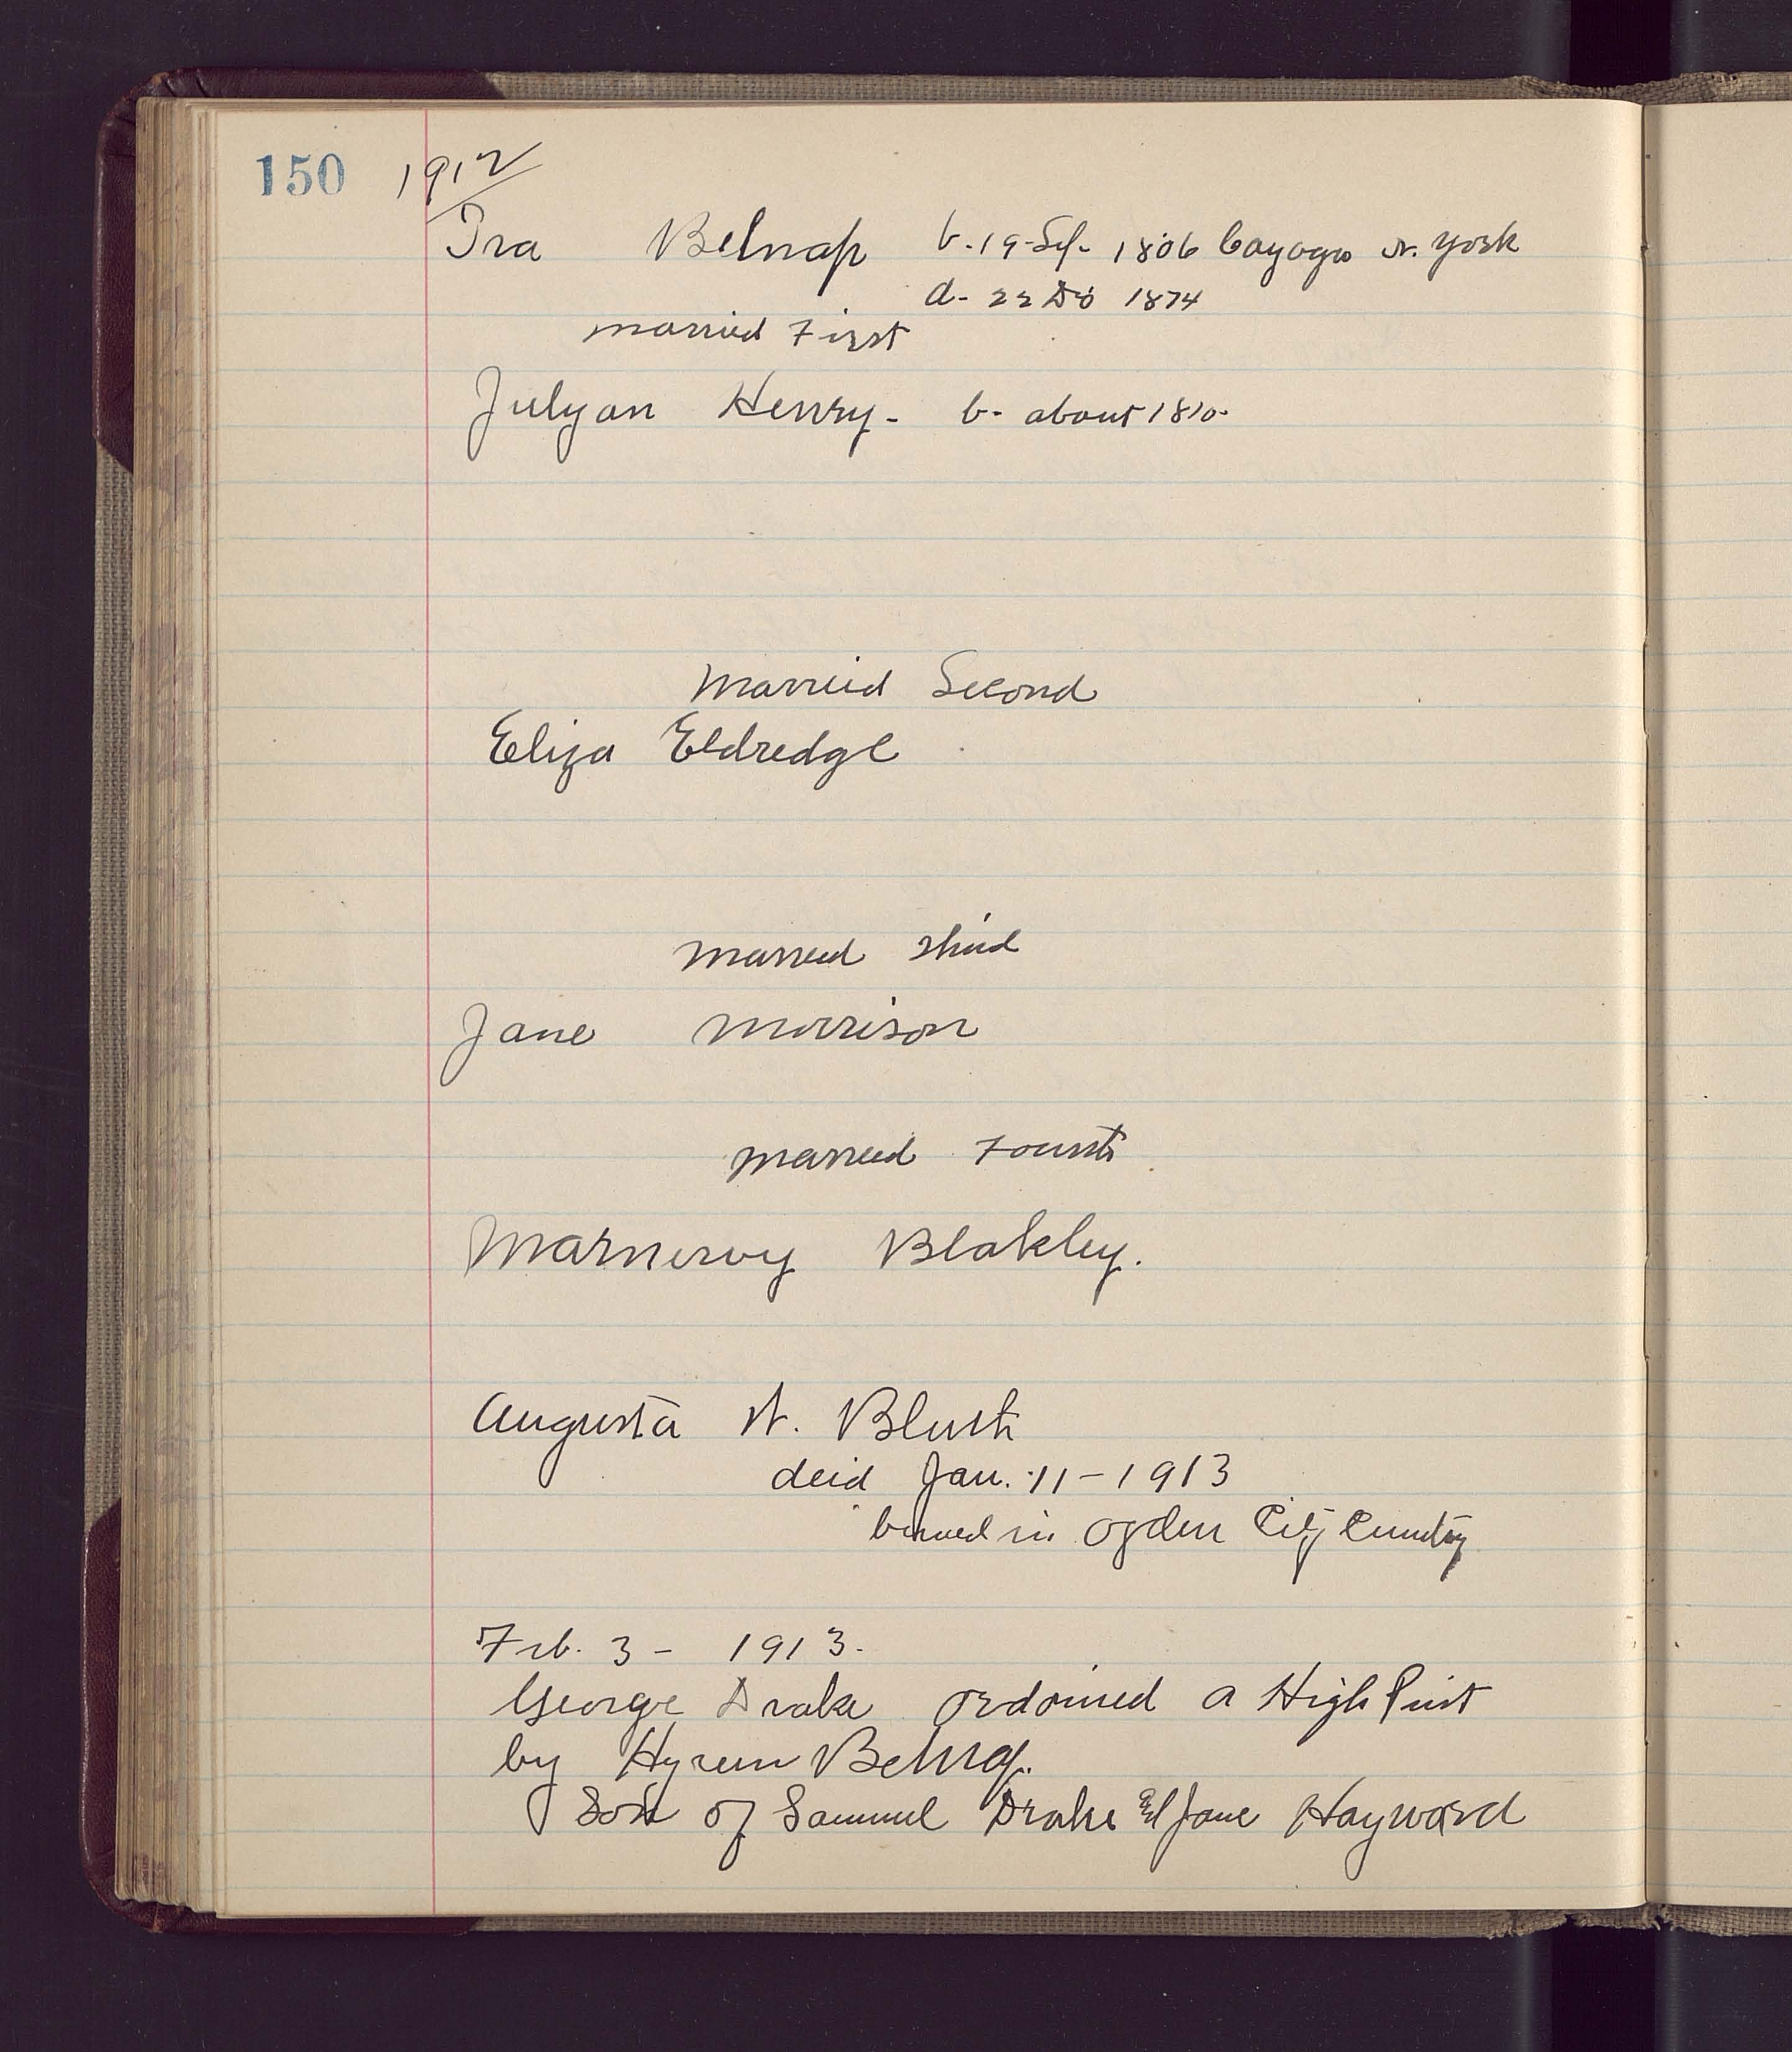 150 1912
Ira Belnap b. 19 Sep. 1806 Cayoga N. York
d- 22 Do 1874
married First
Julyan Henry- b- about 1810-
Married Second
Eliza Eldredge
Married third
Jane Morrison
Married Fourth
Marnervy Blakley.
Augusta W. Bluth
deid Jan. 11-1913
buried in Ogden City Cemetery
Feb. 3- 1913.
George Drake ordained a High Priest
by Hyrum Belnap.
Son of Samuel Drake and Jane Hayward